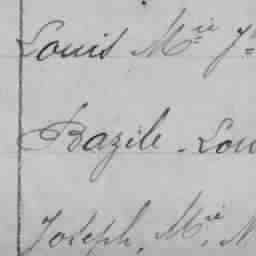 Louis Mie J
Bazile. Lou
Joseph, Mie, N